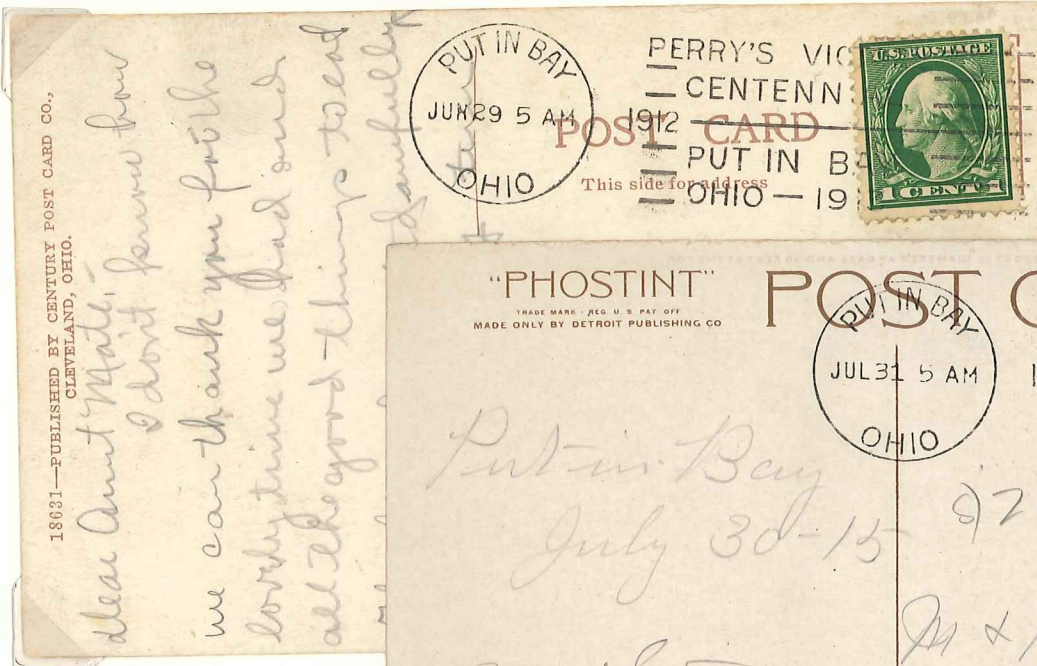 18631—PUBLISHED BY CENTURY POST CARD CO.,
CLEVELAND, OHIO.
Dear Aunt Mate,-
I don't know how
we can thank you for the
lovely time we had and
all the good things to eat
PUT IN BAY
JUN 29 5 AM
OHIO
1912
PERRY'S VIC
CENTENN
PUT IN B
OHIO — 19
POST CARD
This side for address
U.S. POSTAGE
1 CENT 1
"PHOSTINT"
TRADE MARK - REG. U S PAT OFF
MADE ONLY BY DETROIT PUBLISHING CO
POST C
PUT IN BAY
JUL 31 5 AM
OHIO
1
Put-in-Bay
July 30-15
M &